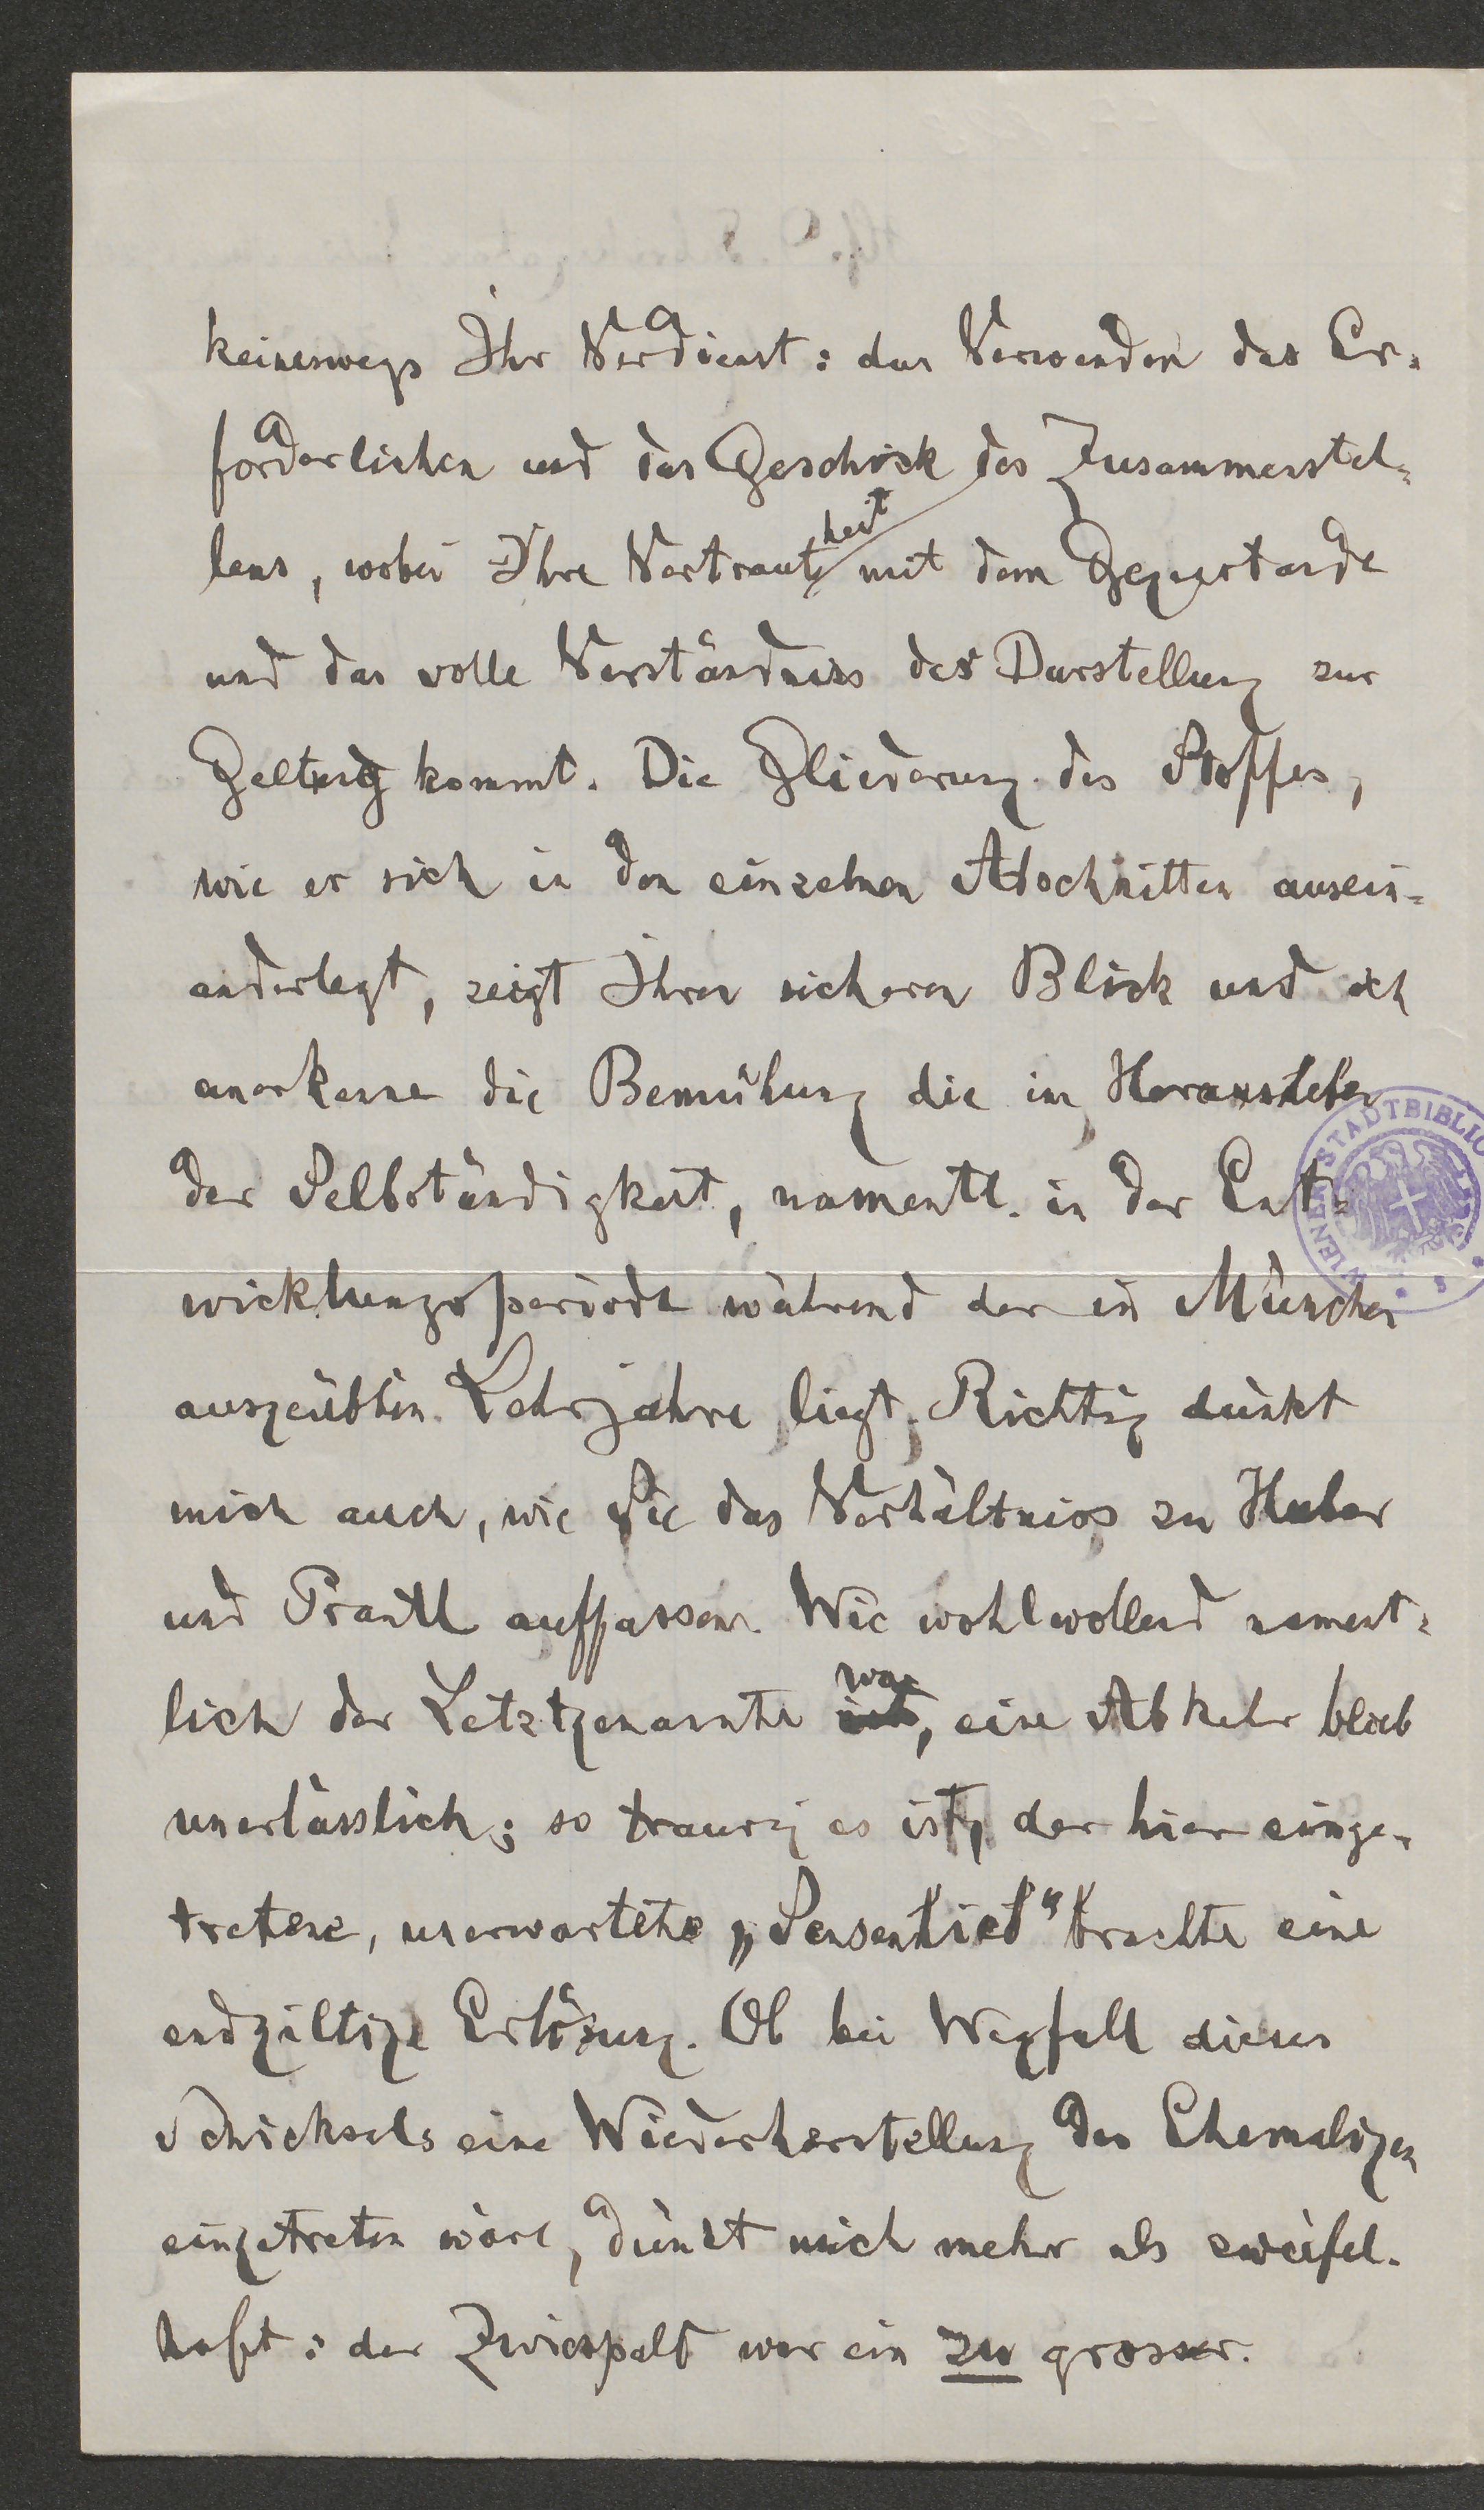 keineswegs Ihr Verdienst: das Verwenden des Er-
forderlichen und das Geschick des Zusammenstel-
lens, wobei Ihre Vertrautheit mit dem Gegenstande
und das volle Verständniss der Darstellung zur
Geltung kommt. Die Gliederung des Stoffes,
wie er sich in den einzelnen Abschnitten ausein-
anderlegt, zeigt Ihren sicheren Blick und ich
anerkenne die Bemühung die im Herausheben
der Selbständigkeit, namentl. in der Ent-
wicklungsperiode während der in München
ausgeübten Lehrjahre liegt. Richtig dünkt
mich auch, wie Sie das Verhältniss zu Huber
und Prantl auffassen. Wie wohlwollend nament-
lich der Letztgenannte ist war, eine Abkehr blieb
unerlässlich; so traurig es ist, der hier einge-
tretene, unerwartete „Sensenhieb" brachte eine
endgültige Erlösung. Ob bei Wegfall dieses
Schicksals eine Wiederherstellung des Ehemaligen
eingetreten wäre, dünkt mich mehr als zweifel-
haft: der Zwiespalt war ein zu grosser.
WIENER STADTBIBLIO